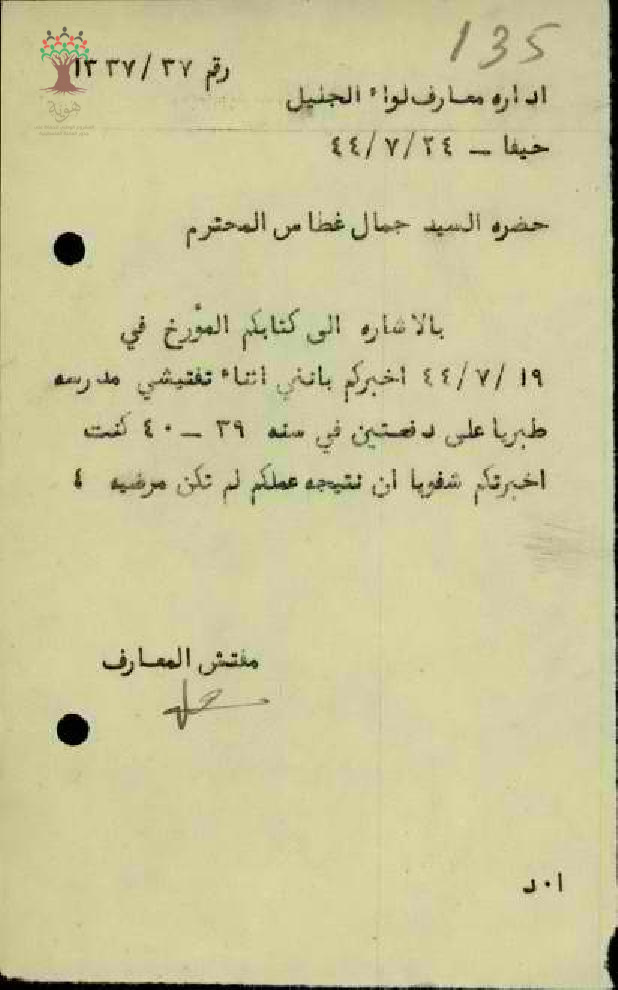 135
رقم ٣٧/ ١٣٣٧
اداره معارف لواء الجليل
حيفا — ٢٤/ ٧/ ٤٤
حضره السيد جمال غطاس المحترم
بالاشاره الى كتابكم المؤرخ في
١٩/ ٧/ ٤٤ اخبركم بانني اثناء تفتيشي مدرسه
طبريا على دفعتين في سنه ٣٩ — ٤٠ كنت
اخبرتكم شفويا ان نتيجه عملكم لم تكن مرضيه ٤
مفتش المعارف
ا٠د
هوية